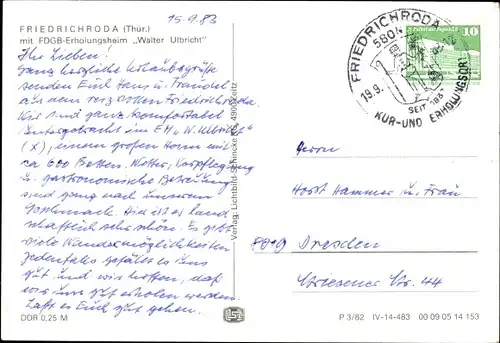 15.9.83
FRIEDRICHRODA (Thür.)
mit FDGB-Erholungsheim „Walter Ulbricht"
Ihr Lieben!
Ganz herzliche Urlaubsgrüße
senden Euch Hans u.
aus dem reizvollen Friedrichroda.
Wir sind ganz komfortabel
untergebracht im EH „W. Ulbricht"
(X), einem großen Heim mit
ca 600 Betten. Wetter, Verpflegung
u. gastronomische Betreuung
sind ganz nach unserem
Geschmack. Hier ist es land-
schaftlich sehr schön. Es gibt
viele Wandermöglichkeiten
Jedenfalls gefällt es uns
gut und wir hoffen, daß
wir uns gut erholen werden.
Laßt es Euch gut gehen.
DDR 0,25 M
Verlag: Lichtbild-Schincke KG, 4900 Zeitz
FRIEDRICHRODA
5804
19.9.
SEIT 1837
KUR-UND ERHOLUNGSORT
10
Herrn
Horst Hammer u. Frau
8019 Dresden
Striesener Str. 44
P 3/82 IV-14-483 00 09 05 14 153